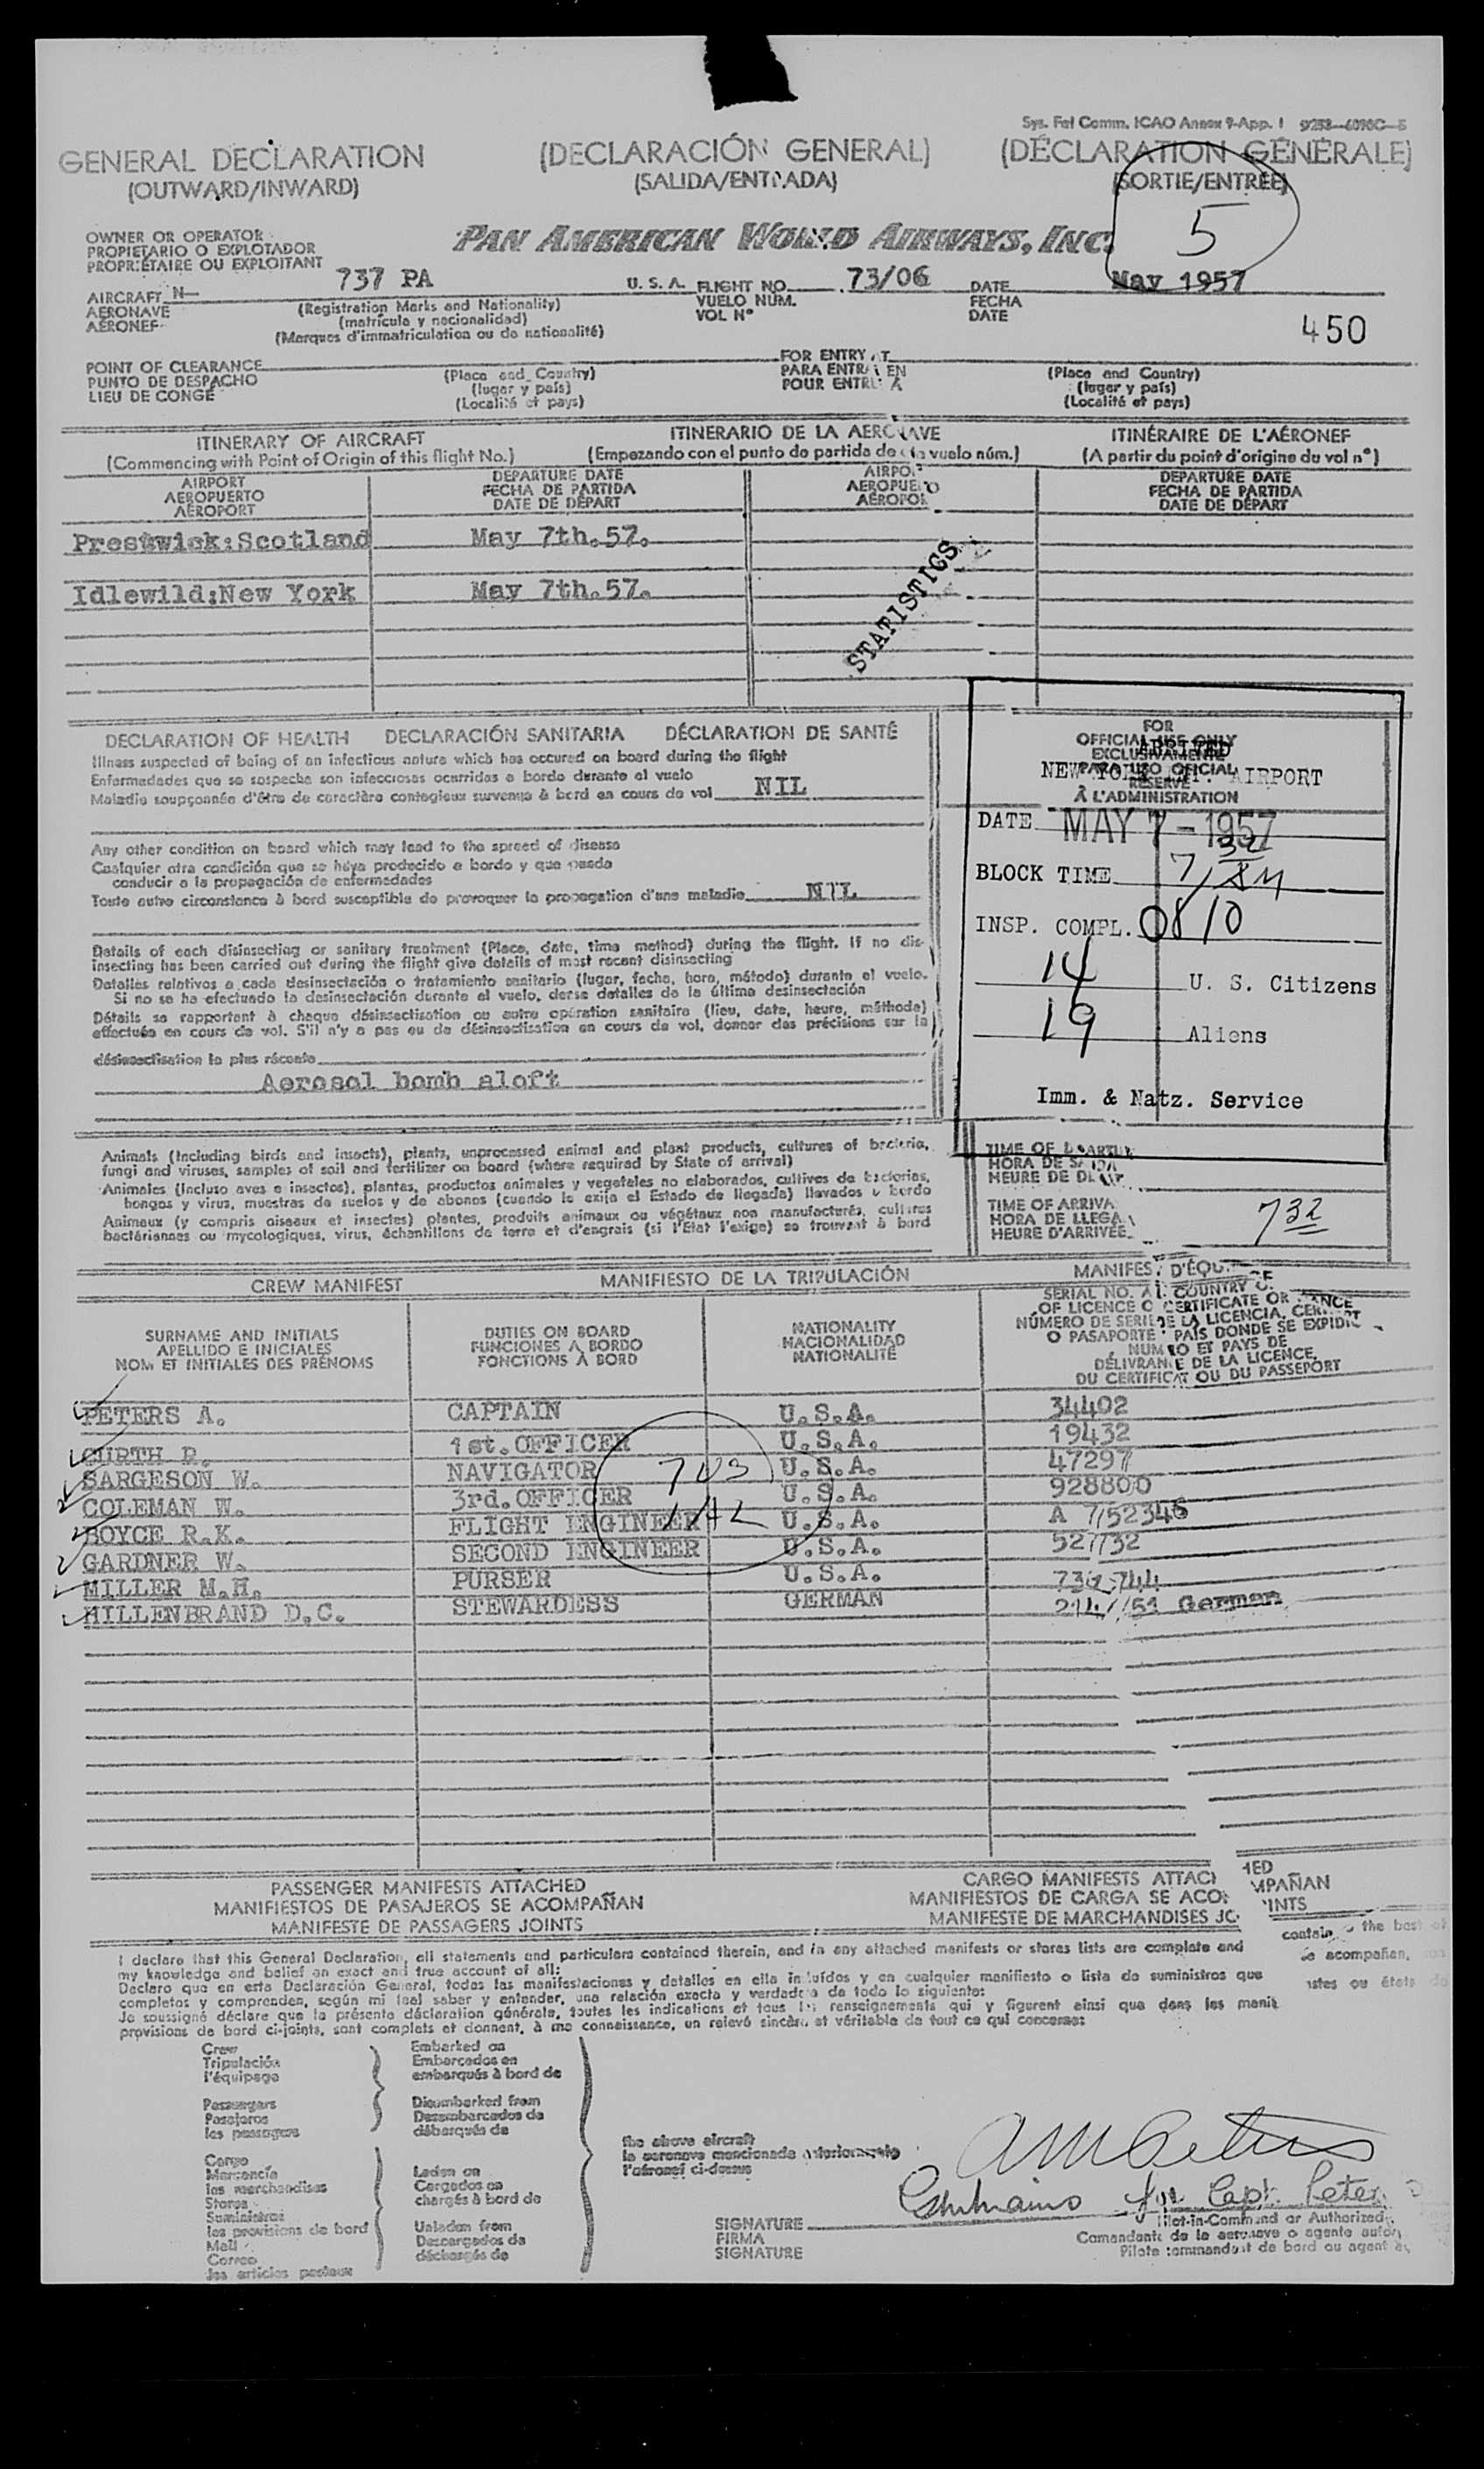 Sys. Fal Comm. ICAO Annex 9-App. 1
GENERAL DECLARATION (DECLARACIÓN GENERAL) (DÉCLARATION GÉNÉRALE)
(OUTWARD/INWARD) (SALIDA/ENTRADA) (SORTIE/ENTRÉE)
5
OWNER OR OPERATOR
PROPIETARIO O EXPLOTADOR
PROPRIÉTAIRE OU EXPLOITANT
PAN AMERICAN WORLD AIRWAYS, INC.
AIRCRAFT N— 737 PA U. S. A. FLIGHT NO. 73/06 DATE May 1957
AERONAVE (Registration Marks and Nationality) VUELO NÚM. FECHA
AÉRONEF (matrícula y nacionalidad) VOL N° DATE
(Marques d'immatriculation ou de nationalité)
450
POINT OF CLEARANCE (Place and Country) FOR ENTRY AT (Place and Country)
PUNTO DE DESPACHO (lugar y país) PARA ENTRA EN (lugar y país)
LIEU DE CONGÉ (Localité et pays) POUR ENTRE A (Localité et pays)
ITINERARY OF AIRCRAFT ITINERARIO DE LA AERONAVE ITINÉRAIRE DE L'AÉRONEF
(Commencing with Point of Origin of this flight No.) (Empezando con el punto de partida de vuelo núm.) (A partir du point d'origine du vol n°)
AIRPORT DEPARTURE DATE AIRPOR DEPARTURE DATE
AEROPUERTO FECHA DE PARTIDA AEROPUERTO FECHA DE PARTIDA
AÉROPORT DATE DE DÉPART AÉROPOR DATE DE DÉPART
Prestwick:Scotland May 7th.57.
Idlewild:New York May 7th.57.
STATISTICS
DECLARATION OF HEALTH DECLARACIÓN SANITARIA DÉCLARATION DE SANTÉ
Illness suspected of being of an infectious nature which has occured on board during the flight
Enfermedades que se sospecha son infecciosas ocurridas a bordo durante el vuelo
Maladie soupçonnée d'être de caractère contagieux survenue à bord en cours de vol NIL
Any other condition on board which may lead to the spread of disease
Cualquier otra condición que se haya producido a bordo y que pueda
conducir a la propagación de enfermedades
Toute autre circonstance à bord susceptible de provoquer la propagation d'une maladie NIL
Details of each disinsecting or sanitary treatment (Place, date, time method) during the flight. If no dis-
insecting has been carried out during the flight give details of most recent disinsecting
Detalles relativos a cada desinsectación o tratamiento sanitario (lugar, fecha, hora, método) durante el vuelo.
Si no se ha efectuado la desinsectación durante el vuelo, dense detalles de la última desinsectación
Détails se rapportant à chaque désinsectisation ou autre opération sanitaire (lieu, date, heure, méthode)
effectuée en cours de vol. S'il n'y a pas eu de désinsectisation en cours de vol, donner des précisions sur la
désinsectisation la plus récente
Aerosol bomb aloft
FOR
OFFICIAL USE ONLY
EXCLUSIVAMENTE
PARA USO OFICIAL
RÉSERVÉ
À L'ADMINISTRATION
ARRIVED
NEW YORK INT. AIRPORT
DATE MAY 7 - 1957
BLOCK TIME 7 32 AM
INSP. COMPL. 0810
14 U. S. Citizens
19 Aliens
Imm. & Natz. Service
Animals (including birds and insects), plants, unprocessed animal and plant products, cultures of bacteria,
fungi and viruses, samples of soil and fertilizer on board (where required by State of arrival)
Animales (incluso aves e insectos), plantas, productos animales y vegetales no elaborados, cultivos de bacterias,
hongos y virus, muestras de suelos y de abonos (cuando lo exija el Estado de llegada) llevados a bordo
Animaux (y compris oiseaux et insectes) plantes, produits animaux ou végétaux non manufacturés, cultures
bactériennes ou mycologiques, virus, échantillons de terre et d'engrais (si l'État l'exige) se trouvant à bord
TIME OF
HORA DE
HEURE DE
TIME OF ARRIVA
HORA DE LLEGA
HEURE D'ARRIVÉE
732
CREW MANIFEST MANIFIESTO DE LA TRIPULACIÓN MANIFES D'ÉQU
SURNAME AND INITIALS DUTIES ON BOARD NATIONALITY
APELLIDO E INICIALES FUNCIONES A BORDO NACIONALIDAD
NOM ET INITIALES DES PRÉNOMS FONCTIONS À BORD NATIONALITÉ
SERIAL NO. COUNTRY
OF LICENCE CERTIFICATE OR
NÚMERO DE SERIE DE LA LICENCIA,
O PASAPORTE PAÍS DONDE SE EXPIDIÓ
NUMÉRO ET PAYS DE
DÉLIVRANCE DE LA LICENCE,
DU CERTIFICAT OU DU PASSEPORT
PETERS A. CAPTAIN U.S.A. 34402
CURTH R. 1st.OFFICER U.S.A. 19432
SARGESON W. NAVIGATOR U.S.A. 47297
COLEMAN W. 3rd.OFFICER U.S.A. 928800
BOYCE R.K. FLIGHT ENGINEER U.S.A. A 752346
GARDNER W. SECOND ENGINEER U.S.A. 527732
MILLER M.H. PURSER U.S.A.
HILLENBRAND D.C. STEWARDESS GERMAN German
7 US
1 A2
PASSENGER MANIFESTS ATTACHED CARGO MANIFESTS ATTACHED
MANIFIESTOS DE PASAJEROS SE ACOMPAÑAN MANIFIESTOS DE CARGA SE ACOMPAÑAN
MANIFESTE DE PASSAGERS JOINTS MANIFESTE DE MARCHANDISES JOINTS
I declare that this General Declaration, all statements and particulars contained therein, and in any attached manifests or stores lists are complete and
my knowledge and belief an exact and true account of all:
Declaro que en esta Declaración General, todas las manifestaciones y detalles en ella incluídos y en cualquier manifiesto o lista de suministros que
completos y comprenden, según mi leal saber y entender, una relación exacta y verdadera de todo lo siguiente:
Je soussigné déclare que la présente déclaration générale, toutes les indications et tous les renseignements qui y figurent ainsi que dans les
provisions de bord ci-joints, sont complets et donnent, à ma connaissance, un relevé sincère et véritable de tout ce qui concerne:
contain the best of
acompañan,
ou états de
Crew Embarked on
Tripulación Embarcados en
l'équipage embarqués à bord de
Passengers Disembarked from
Pasajeros Desembarcados de
les passagers débarqués de
the above aircraft
la aeronave mencionada anteriormente
l'aéronef ci-dessus
Cargo
Mercancía Laden on
les marchandises Cargados en
Stores chargés à bord de
Suministros
les provisions de bord Unladen from
Mail Descargados de
Correo déchargés de
les articles postaux
for Capt. Peters
SIGNATURE Pilot-in-Command or Authorized
FIRMA Comandante de la aeronave o agente autor
SIGNATURE Pilote commandant de bord ou agent